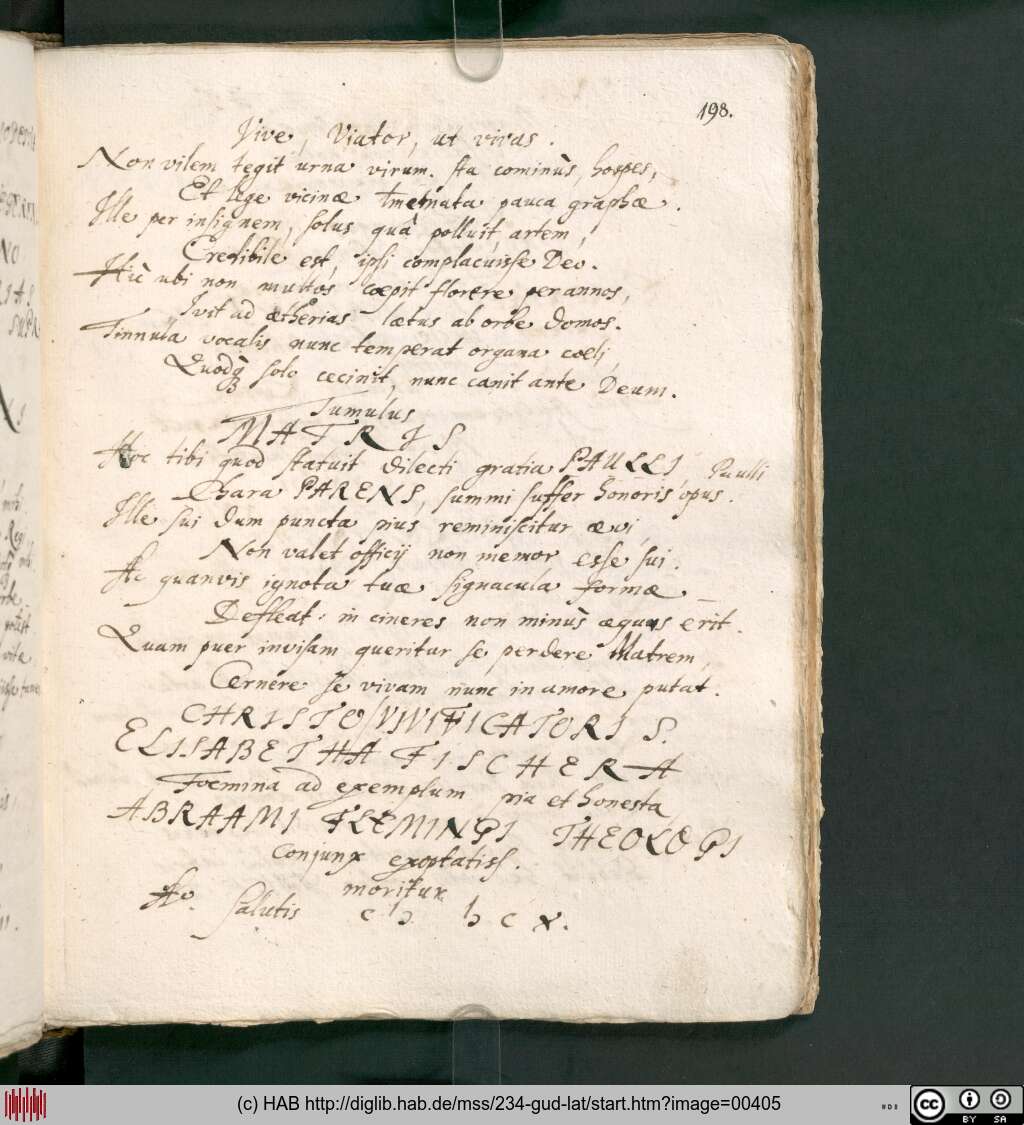 198.
Vive, Viator, ut vivas.
Non vilem tegit urna virum. sta cominùs, hospes,
Et lege vicinæ pauca graphæ.
Ille per insignem, solus quâ polluit, artem,
Credibile est, ipsi complacuisse Deo.
Hic ubi non multos cœpit florere per annos,
Ivit ad ætherias lætus ab orbe domos.
Tinnula vocalis nunc temperat organa cœli,
Quodq3 solo cecinit, nunc canit ante Deum.
Tumulus
MATRIS
Hoc tibi quod statuit dilecti gratia PAULLI Paulli
Chara PARENS, summi suffer honoris opus.
Ille sui dum puncta pius reminiscitur ævi,
Non valet officij non memor esse sui.
Ac quanvis ignota tuæ signacula formæ
Defleat: in cineres non minùs æquus erit.
Quam puer invisam queritur se perdere Matrem,
Cernere se vivam nunc in amore putat.
CHRISTO VIVIFICATORI S.
ELISABETHA FISCHERA
Foemina ad exemplum pia et honesta,
ABRAAMI FLEMINGI THEOLOGI
Conjunx exoptatiss.
moritur
Ao. Salutis c Iↄ Iↄ c x.
(c) HAB http://diglib.hab.de/mss/234-gud-lat/start.htm?image=00405
cc BY SA